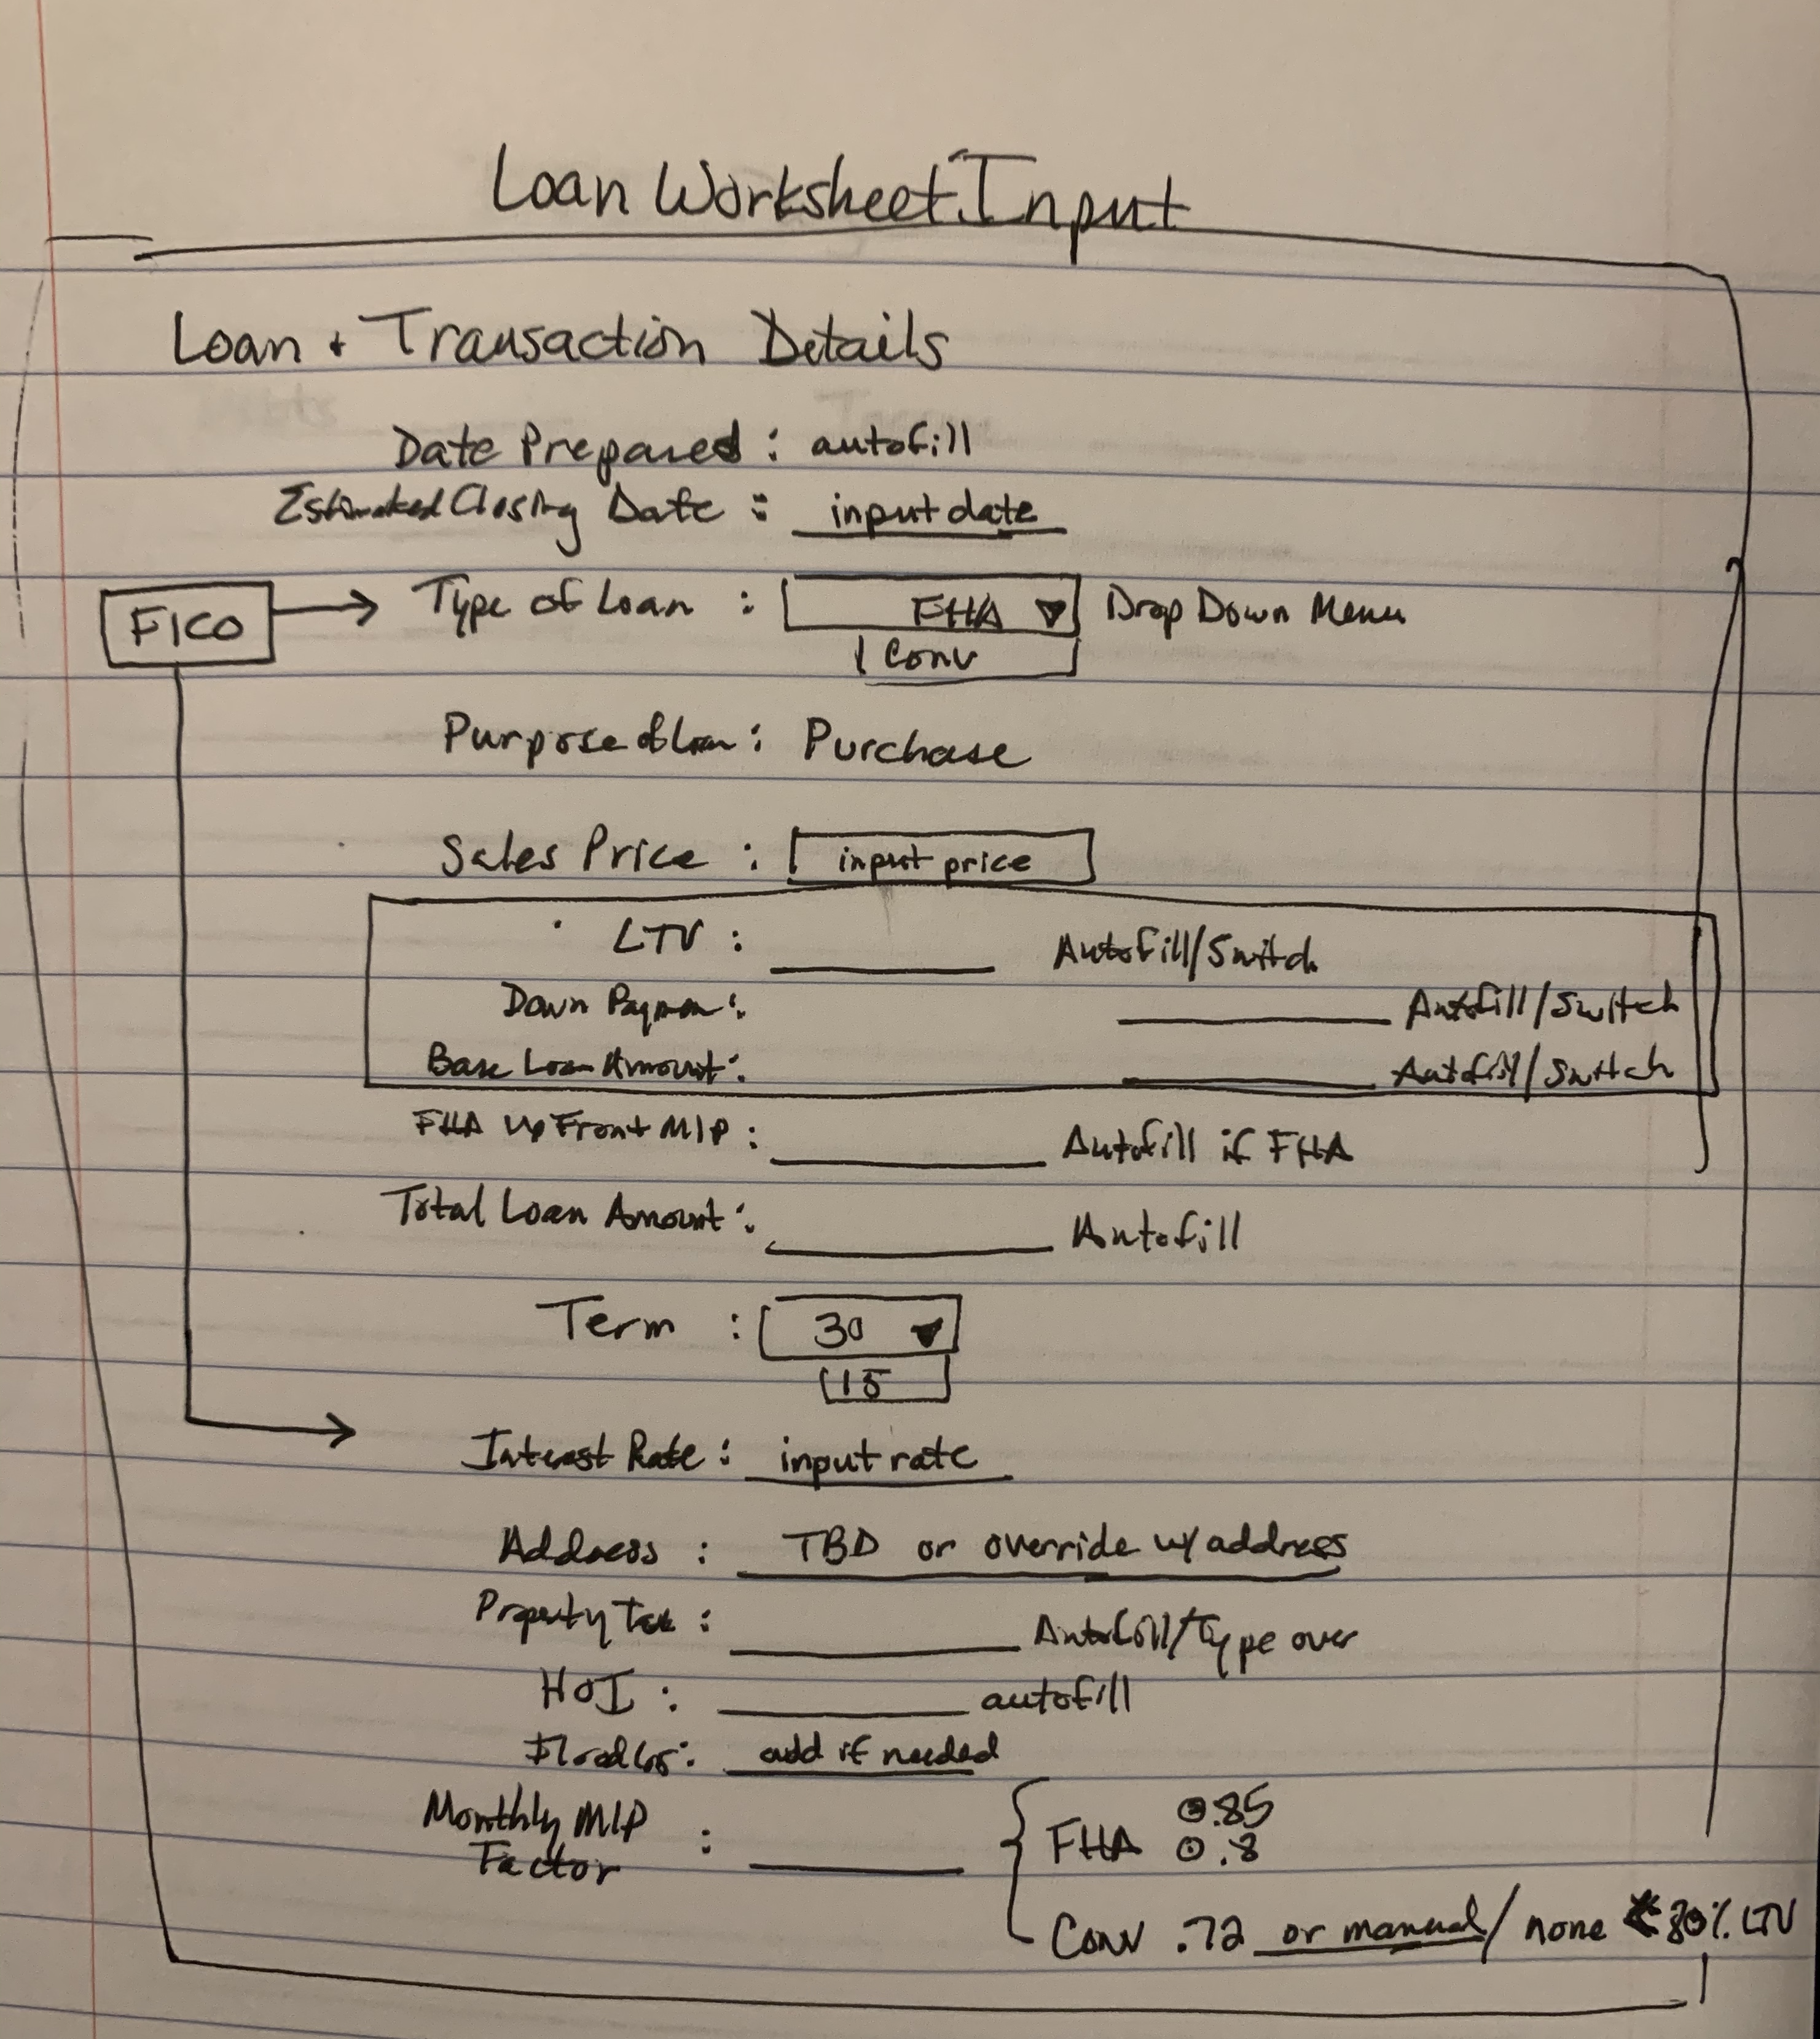 Loan Worksheet Input
Loan + Transaction Details
Date Prepared : autofill
Estimated Closing Date : input date
FICO → Type of Loan : FHA ▼ Drop Down Menu
Conv
Purpose of Loan : Purchase
Sales Price : input price
LTV : Autofill/Switch
Down Paymen : Autofill/Switch
Base Loan Amount : Autofill/Switch
FHA Up Front MIP : Autofill if FHA
Total Loan Amount : Autofill
Term : 30 ▼
15
Interest Rate : input rate
Address : TBD or override w/ address
Property Tax : Autofill/Type over
HOI : autofill
Flood Ins : add if needed
Monthly MIP
Factor :
FHA 0.85
0.8
Conv .72 or manual/ none < 80% LTV